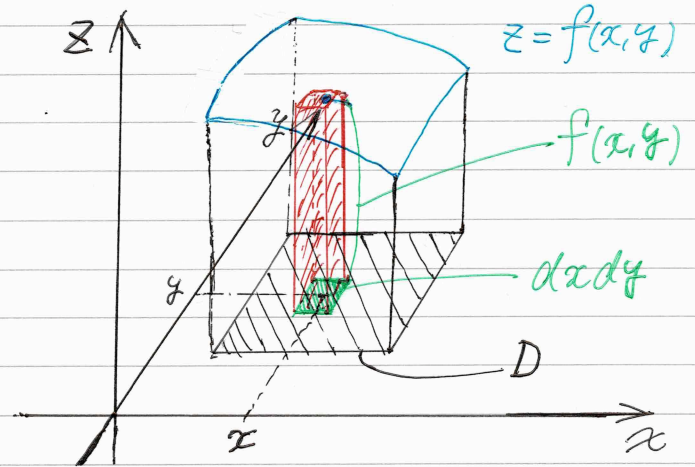 Z
z = f(x,y)
y
f(x,y)
y
dxdy
D
x
x